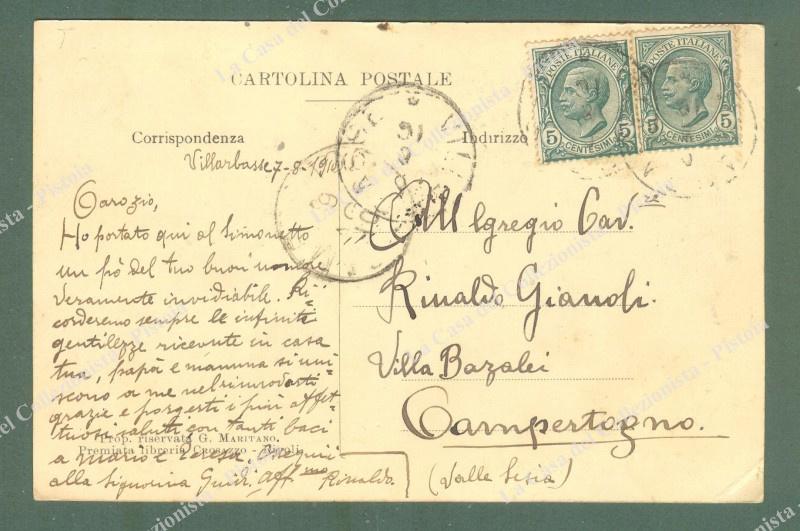 CARTOLINA POSTALE
Corrispondenza
Indirizzo
POSTE ITALIANE
5 CENTESIMI 5
POSTE ITALIANE
5 CENTESIMI 5
Villarbasse 7-8-1910
Ho portato qui al Simonetto
un pò del tuo buon umore
veramente invidiabile. Ri-
corderemo sempre le infinite
gentilezze ricevute in casa
tua, papà e mamma si uni-
scono a me nel rimandarti
grazie e porgerti i più affet-
tuosi saluti con tanti baci
a Mario e
alla Signorina Guidi. Aff.mo Rinaldo.
Prop. riservata G. MARITANO.
Premiata libreria CROSAZZO - Rivoli
All Egregio Cav.
Rinaldo Gianoli.
Villa Bazalei
Campertogno.
(Valle Sesia)
La Casa del Collezionista - Pistoia